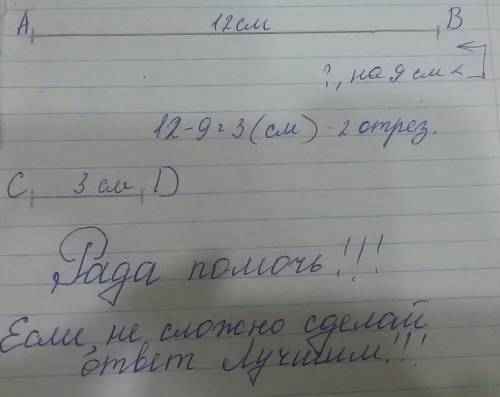 A 12 см B
?, на 9 см <
12-9=3 (см) - 2 отрез.
C 3 см D
Рада помочь!!!
Если не сложно сделай
ответ лучшим!!!